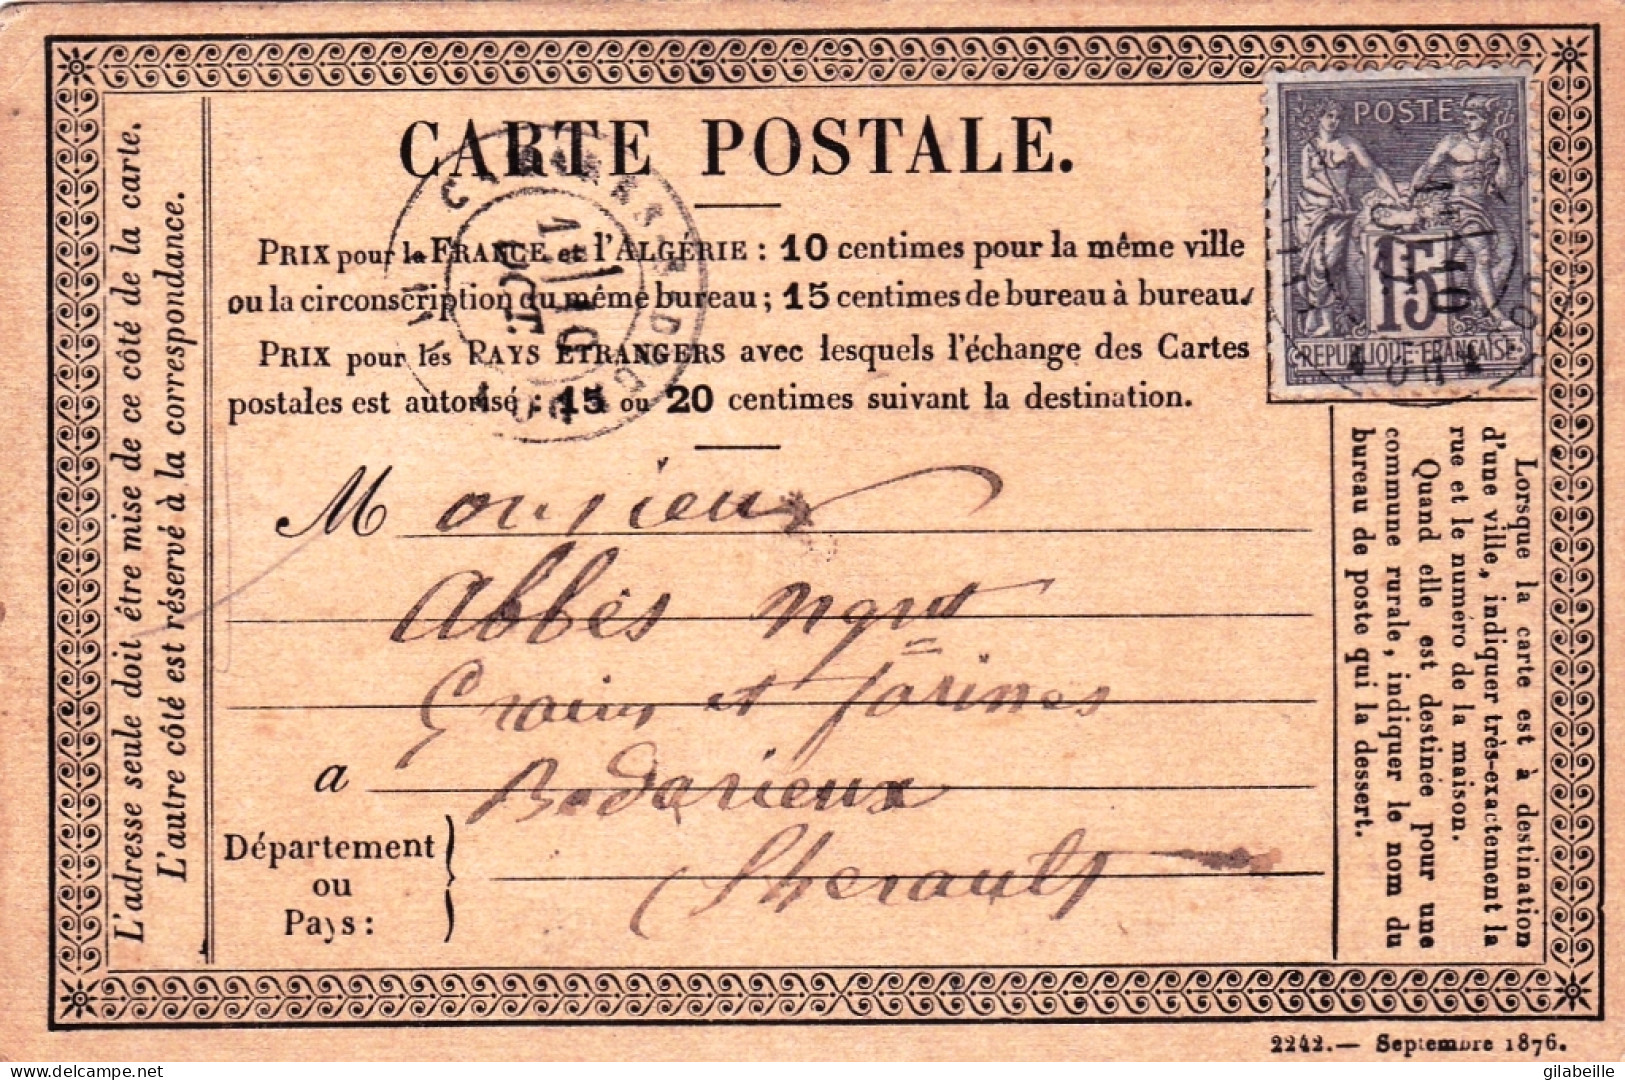 CARTE POSTALE.
PRIX pour la FRANCE et l'ALGÉRIE : 10 centimes pour la même ville
ou la circonscription du même bureau ; 15 centimes de bureau à bureau.
PRIX pour les PAYS ÉTRANGERS avec lesquels l'échange des Cartes
postales est autorisé : 15 ou 20 centimes suivant la destination.
POSTE
15
REPUBLIQUE FRANÇAISE
Monsieur
Abbès Ngnt
Grains et farines
a Bedarieux
Département
ou
Pays :
l'herault
L'adresse seule doit être mise de ce côté de la carte.
L'autre côté est réservé à la correspondance.
Lorsque la carte est à destination
d'une ville, indiquer très-exactement la
rue et le numéro de la maison.
Quand elle est destinée pour une
commune rurale, indiquer le nom du
bureau de poste qui la dessert.
2242.— Septembre 1876.
delcampe.net
gilabeille